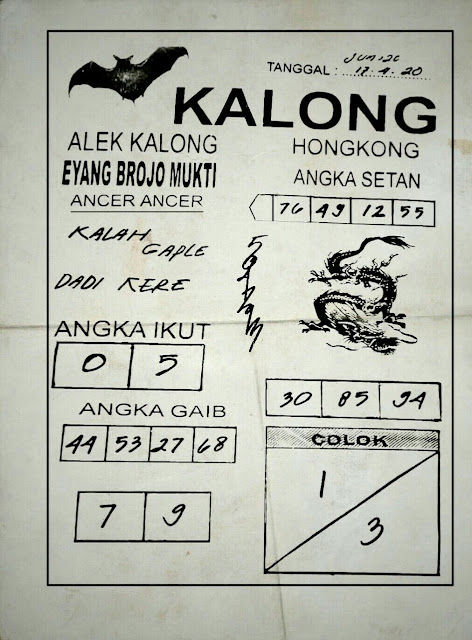 TANGGAL : 17-4-20
KALONG
ALEK KALONG
HONGKONG
EYANG BROJO MUKTI
ANGKA SETAN
ANCER ANCER
76 49 12 55
KALAH
GAPLE
DADI KERE
ANGKA IKUT
0 5
30 85 94
ANGKA GAIB
44 53 27 68
COLOK
1
3
7 9